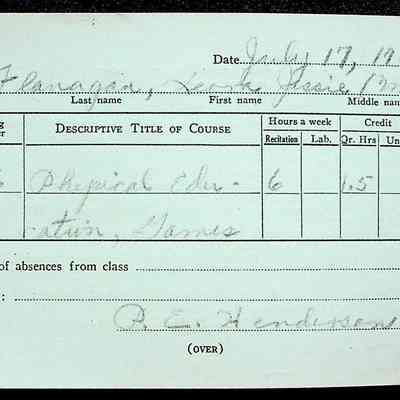 Date July 17, 19
Flanagan, Jessie
Last name First name Middle nam
g Descriptive Title of Course Hours a week Credit
er Recitation Lab. Qr. Hrs Un
Physical Edu- 6 1.5
cation, Games
of absences from class
:
P. E. Henderson
(OVER)